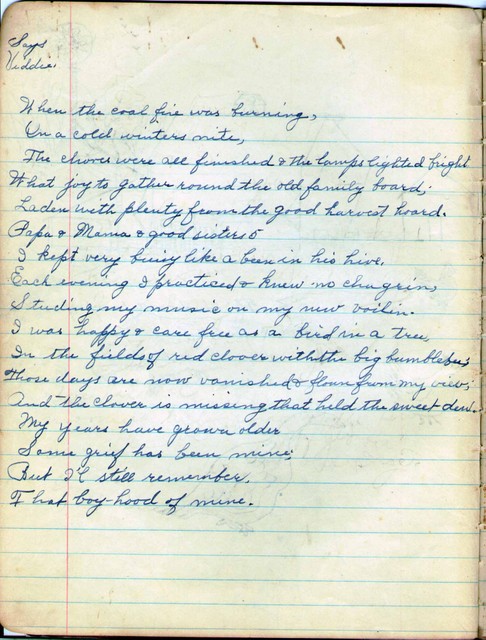 Says
Viddie.
When the coal fire was burning,
On a cold winters nite,
The chores were all finished & the lamps lighted bright
What joy to gather round the old family board,
Laden with plenty from the good harvest hoard.
Papa & Mama & good sisters 5
I kept very busy like a been in his hive,
Each evening I practiced & knew no chagrin,
Studing my music on my new voilin.
I was happy & care free as a bird in a tree,
In the fields of red clover with the big bumblebees
Those days are now vanished & floun from my view,
And the clover is missing that held the sweet dew.
My years have grown older
Some grief has been mine,
But I'l still remember.
That boy hood of mine.